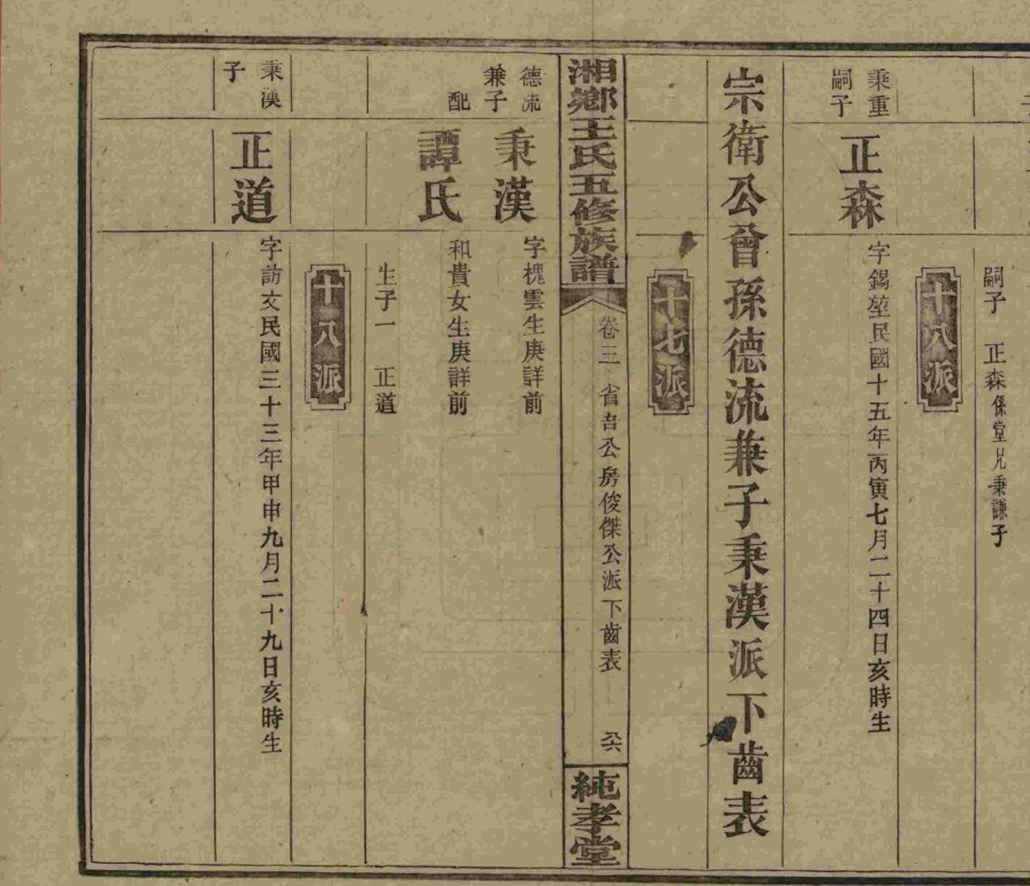 嗣子 正森係堂兄秉謙子
十八派
秉重嗣子
正森
字錫堃民國十五年丙寅七月二十四日亥時生
宗衛公曾孫德流兼子秉漢派下齒表
十七派
湘鄉王氏五修族譜
卷三 省吾公房俊傑公派下齒表
六
純孝堂
德流兼子
秉漢
字槐雲生庚詳前
配
譚氏
和貴女生庚詳前
生子一 正道
十八派
秉漢子
正道
字訪文民國三十三年甲申九月二十九日亥時生